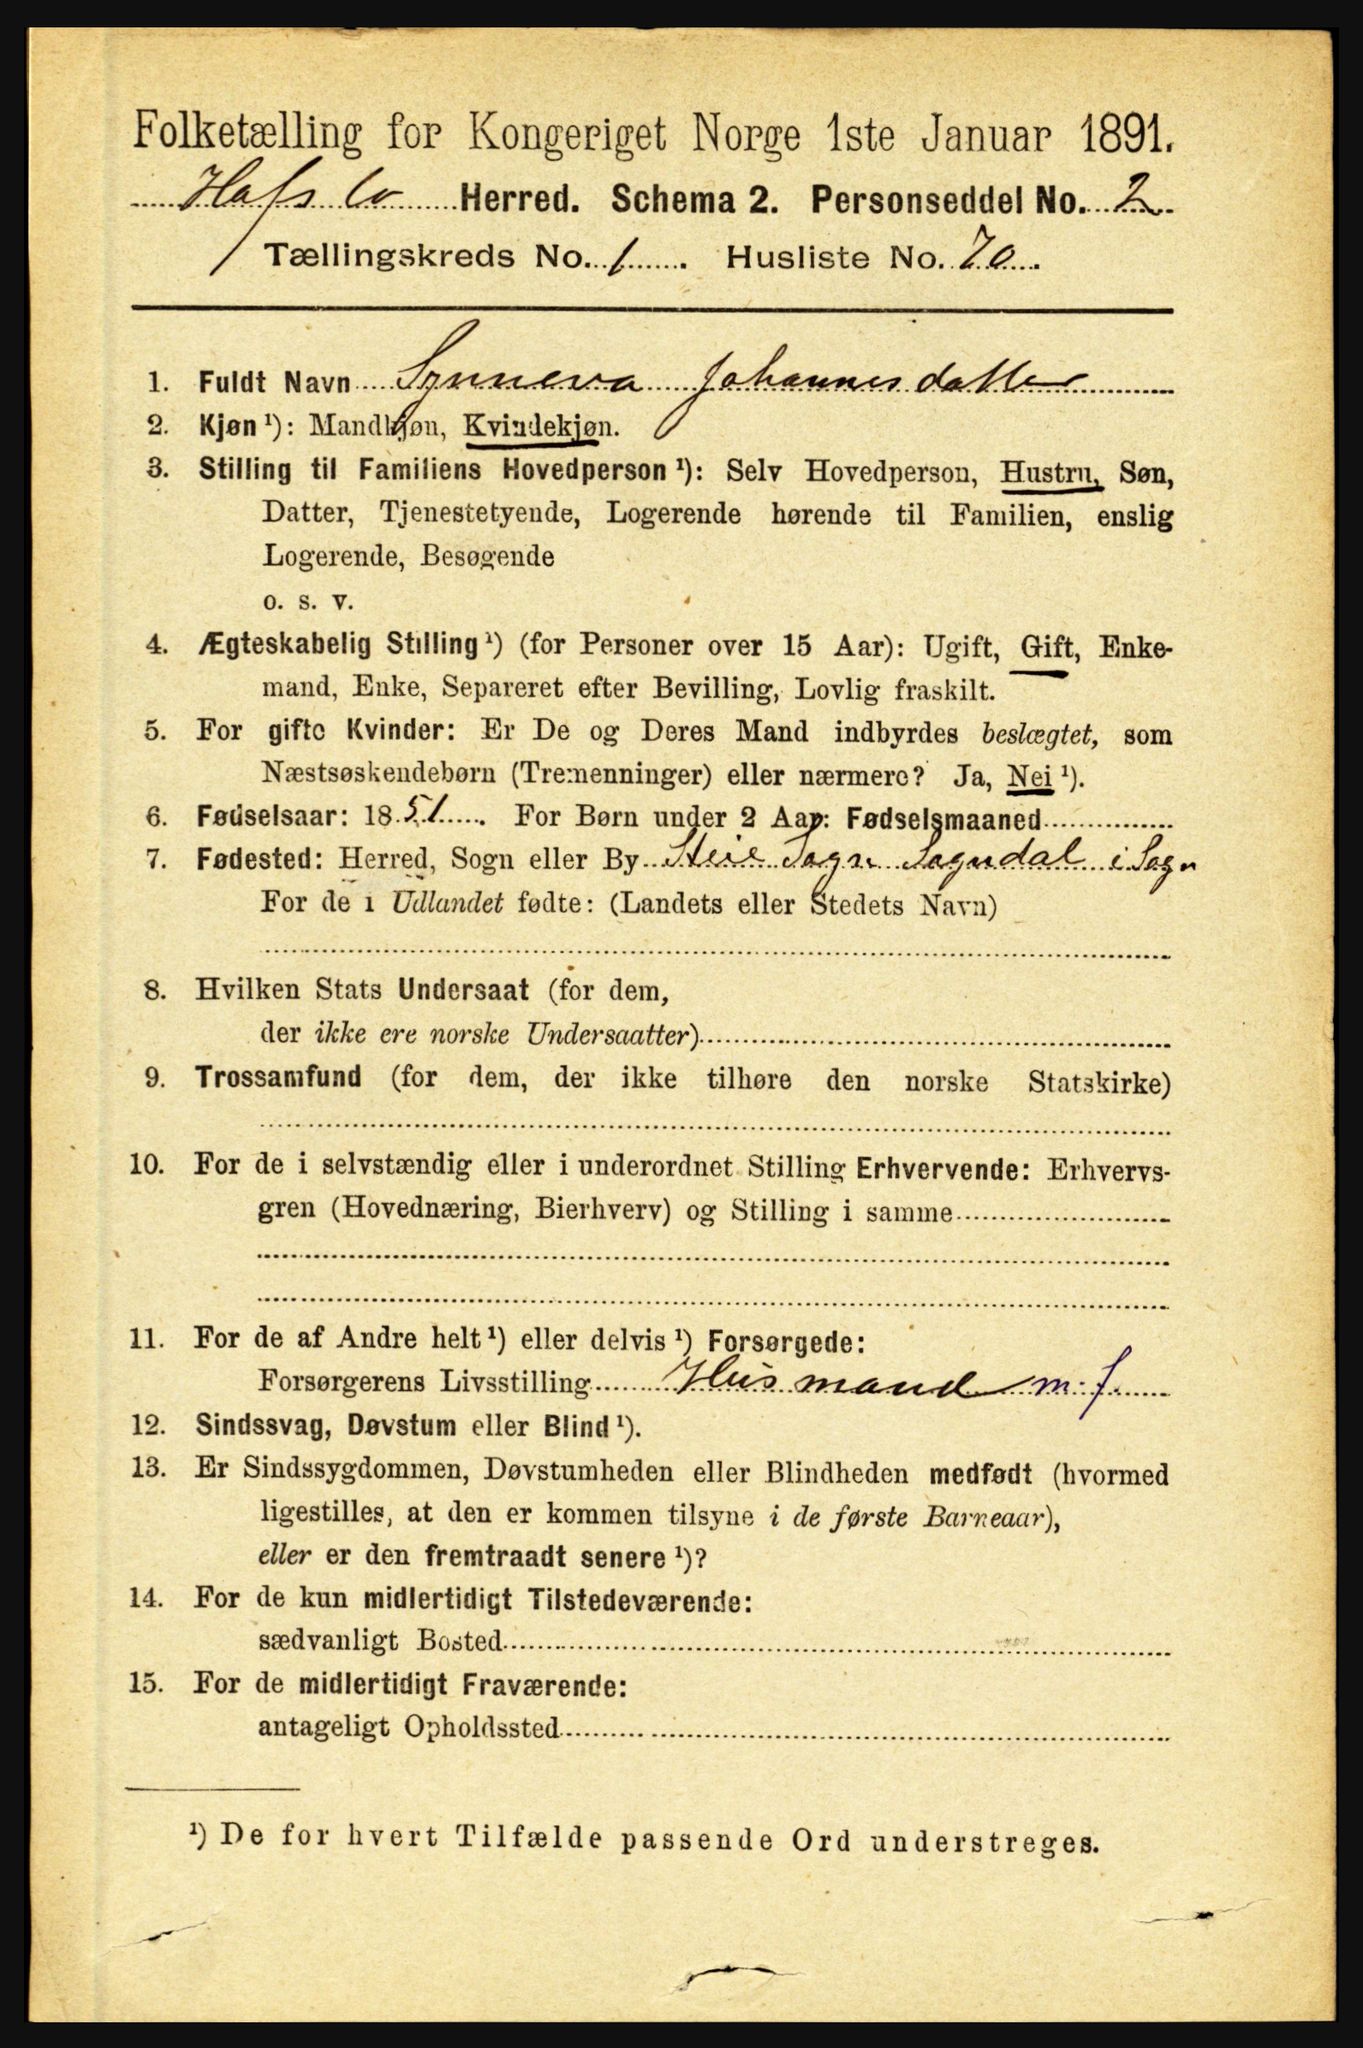 Folketælling for Kongeriget Norge 1ste Januar 1891.
Hafslo Herred. Schema 2. Personseddel No. 2
Tællingskreds No. 1. Husliste No. 70.
1. Fuldt Navn Synneva Johannesdatter
2. Kjøn¹): Mandkjøn, Kvindekjøn.
3. Stilling til Familiens Hovedperson¹): Selv Hovedperson, Hustru, Søn,
Datter, Tjenestetyende, Logerende hørende til Familien, enslig
Logerende, Besøgende
o. s. v.
4. Ægteskabelig Stilling¹) (for Personer over 15 Aar): Ugift, Gift, Enke-
mand, Enke, Separeret efter Bevilling, Lovlig fraskilt.
5. For gifte Kvinder: Er De og Deres Mand indbyrdes beslægtet, som
Næstsøskendebørn (Tremenninger) eller nærmere? Ja, Nei¹).
6. Fødselsaar: 1851. For Børn under 2 Aar: Fødselsmaaned
7. Fødested: Herred, Sogn eller By Sogn Sogndal i Sogn
For de i Udlandet fødte: (Landets eller Stedets Navn)
8. Hvilken Stats Undersaat (for dem,
der ikke ere norske Undersaatter)
9. Trossamfund (for dem, der ikke tilhøre den norske Statskirke)
10. For de i selvstændig eller i underordnet Stilling Erhvervende: Erhvervs-
gren (Hovednæring, Bierhverv) og Stilling i samme
11. For de af Andre helt¹) eller delvis¹) Forsørgede:
Forsørgerens Livsstilling Husmand m. j.
12. Sindssvag, Døvstum eller Blind¹).
13. Er Sindssygdommen, Døvstumheden eller Blindheden medfødt (hvormed
ligestilles, at den er kommen tilsyne i de første Barneaar),
eller er den fremtraadt senere¹)?
14. For de kun midlertidigt Tilstedeværende:
sædvanligt Bosted
15. For de midlertidigt Fraværende:
antageligt Opholdssted
¹) De for hvert Tilfælde passende Ord understreges.